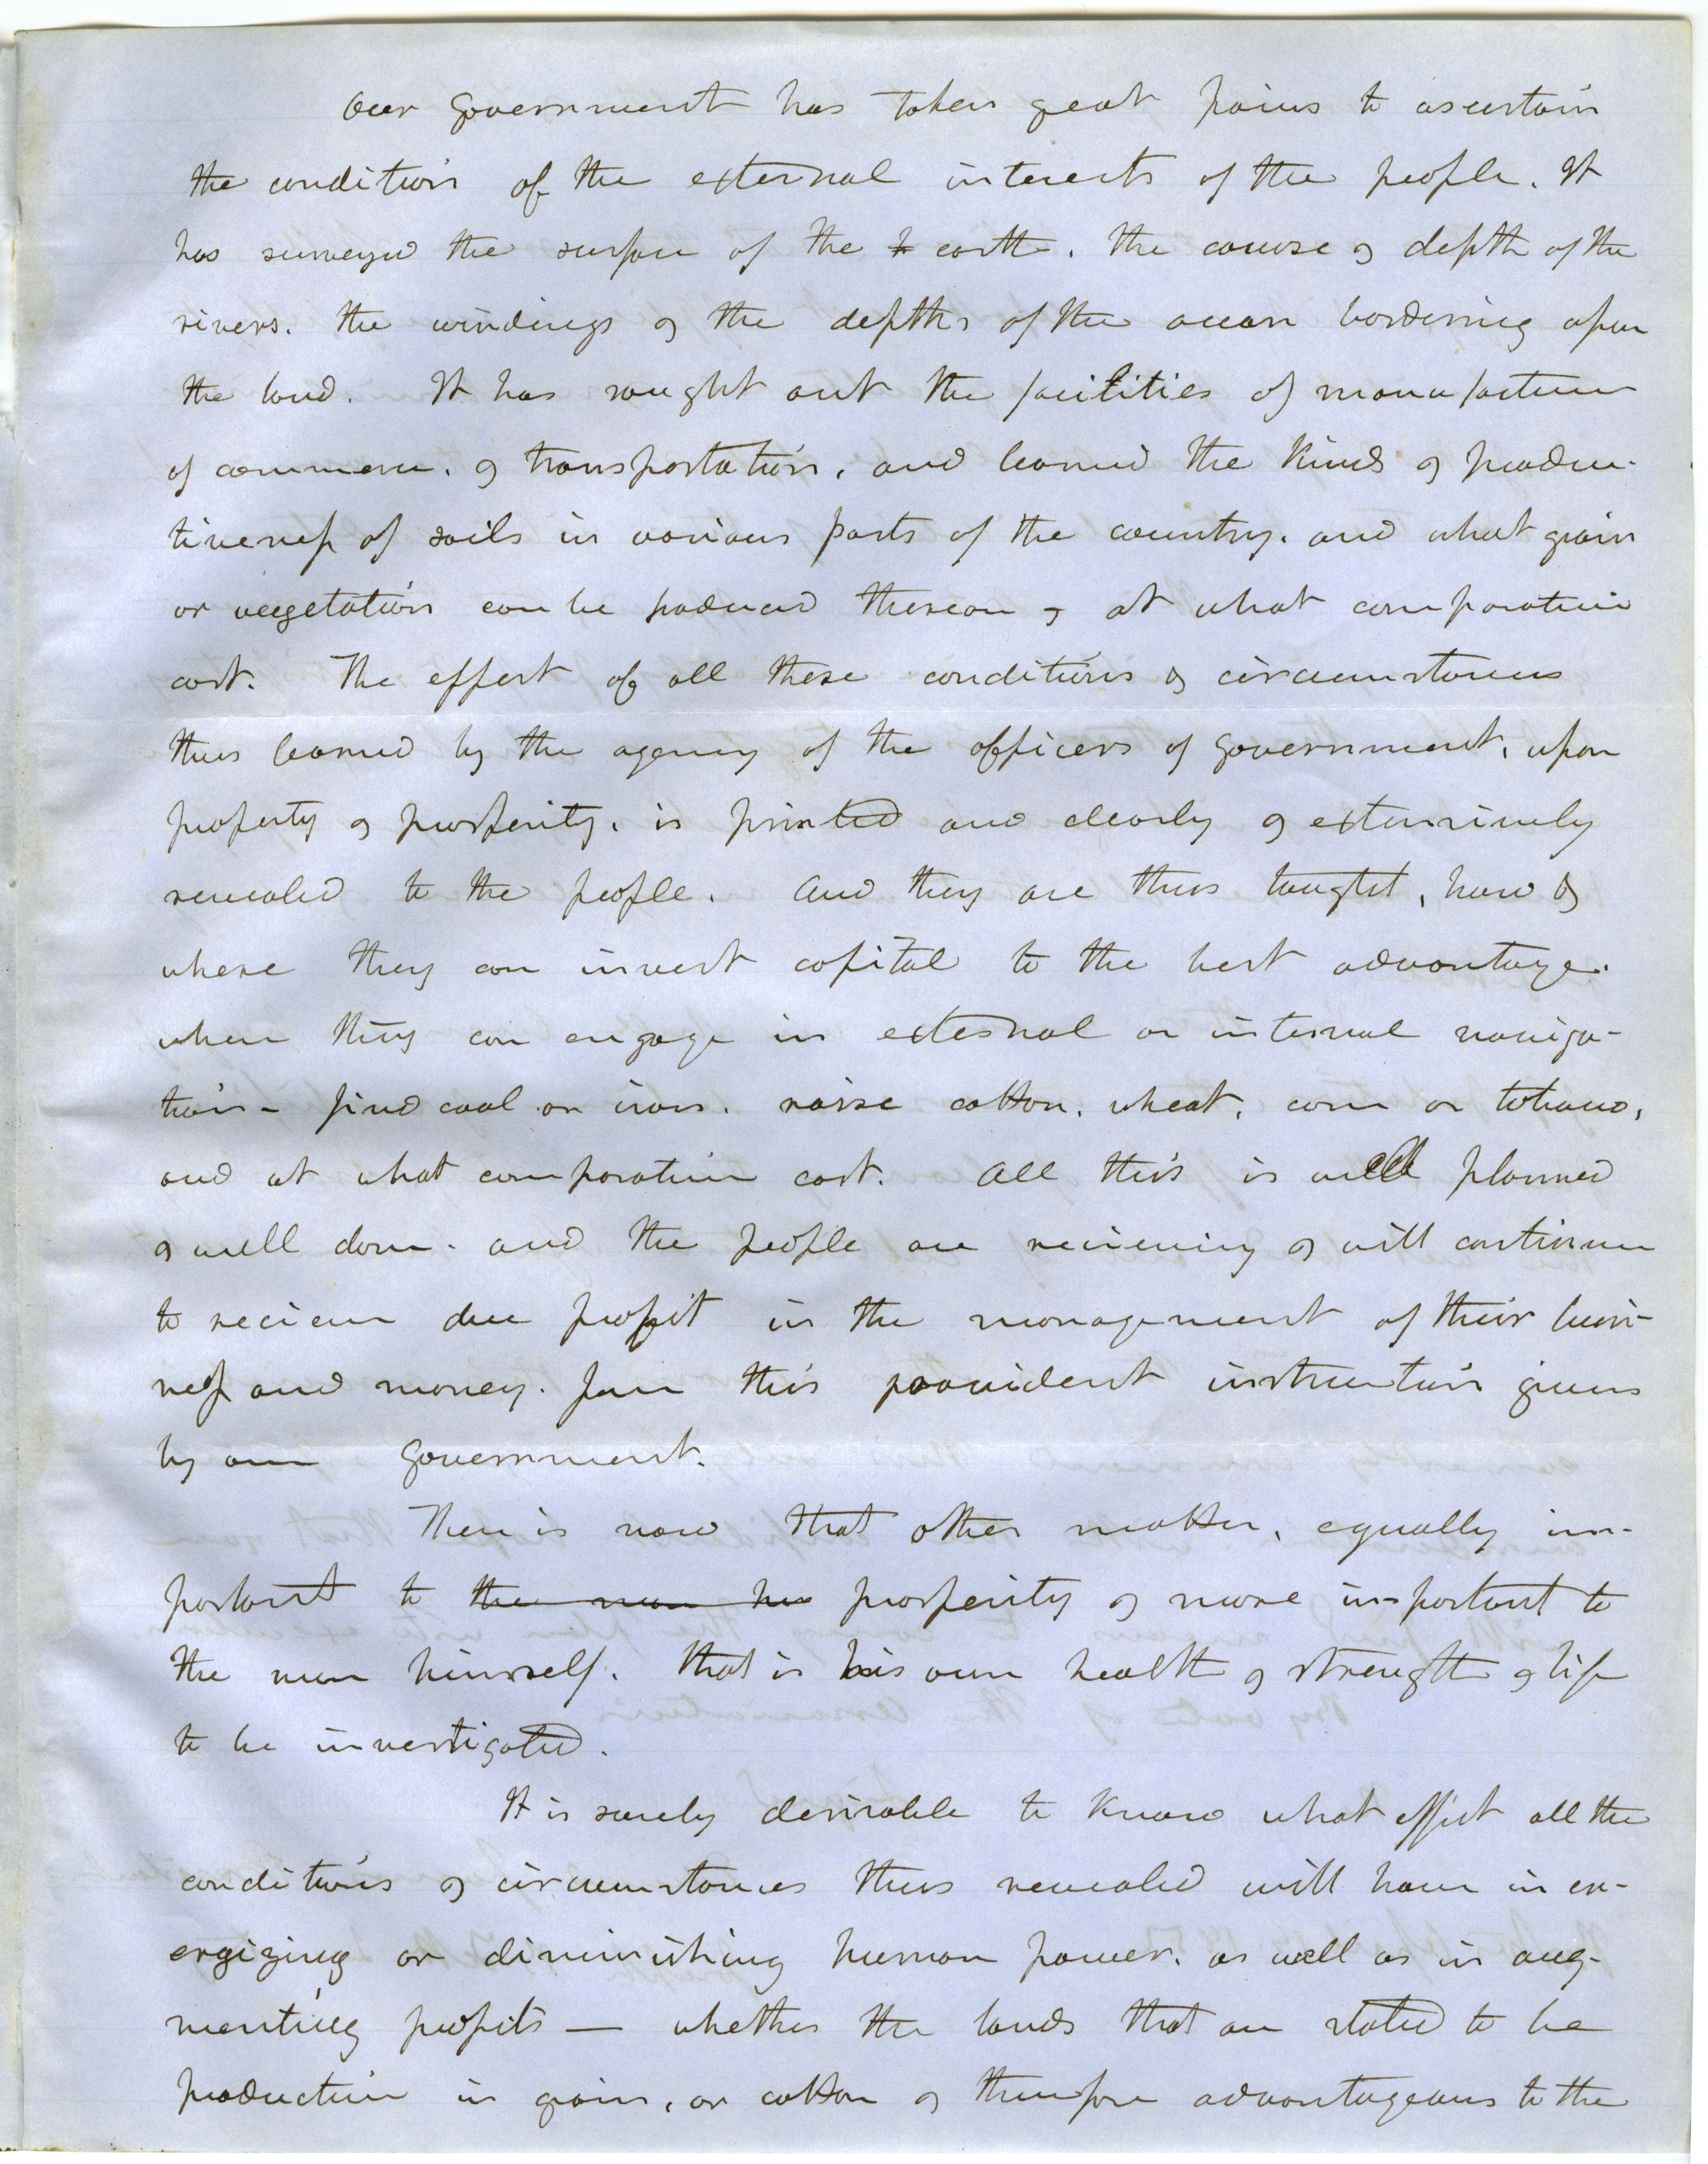 Our Government has taken great pains to ascertain
the condition of the external interests of the people. It
has surveyed the surface of the earth. the course & depth of the
rivers. the windings & the depths of the ocean bordering upon
the land. It has sought out the facilities of manufacture
of commerce. & transportation, and learned the kinds & produc-
tiveness of soils in various parts of the country. and what grain
or vegetation can be produced thereon & at what comparative
cost. The effect of all these conditions & circumstances
thus learned by the agency of the officers of Government, upon
property & prosperity, is printed and clearly & extensively
revealed to the people. And they are thus taught, how &
where they can invest capital to the best advantage.
when they can engage in external or internal naviga-
tion - find coal or iron. raise cotton. wheat. corn or tobacco,
and at what comparative cost. All this is well planned
& well done. and the people are recieving & will continue
to recieve due profit in the management of their busi-
ness and money. from this provident instruction given
by our Government.
There is now that other matter, equally im-
portant to the man his prosperity & more important to
the man himself. that is his own health & strength & life
to be investigated.
It is surely desirable to know what effect all the
conditions & circumstances thus revealed will have in en-
ergizing or diminishing human power. as well as in aug-
menting profits — whether the lands that are stated to be
productive in grain, or cotton & therefore advantageous to the